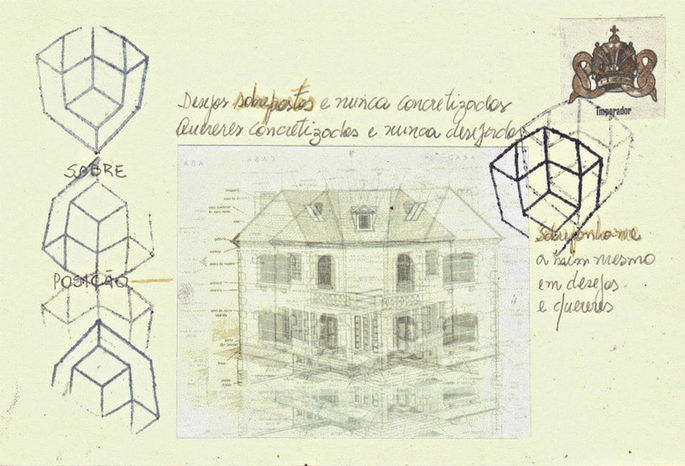 Desejos sobrepostos e nunca concretizados
Quereres concretizados e nunca desejados
Imperador
SOBRE
POSIÇÃO
Sobreponho-me
a mim mesmo
em desejos
e quereres
CASA